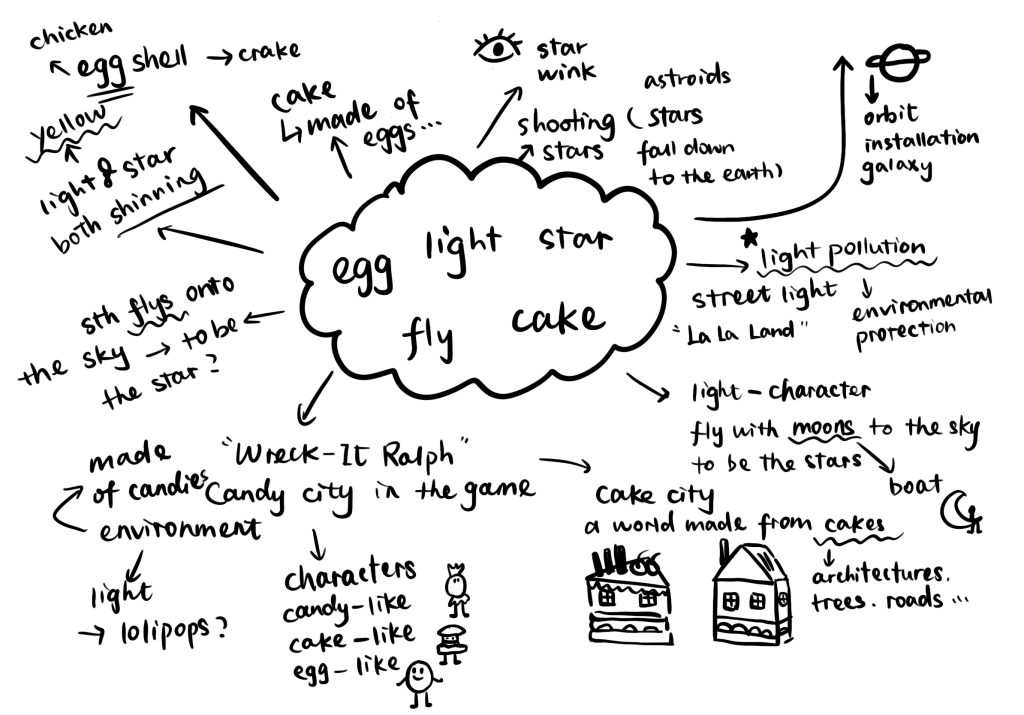 chicken
egg shell → crake
yellow
light & star
both shinning
cake
↳ made of
eggs...
star
wink
shooting
stars
astroids
(stars
fall down
to the earth)
orbit
installation
galaxy
egg light star
fly cake
★ light pollution
street light
"La La Land"
environmental
protection
sth flys onto
the sky → to be
the star?
light - character
fly with moons to the sky
to be the stars
boat
"Wreck-It Ralph"
Candy city in the game
made
of candies
environment
light
→ lolipops?
characters
candy-like
cake-like
egg-like
cake city
a world made from cakes
architectures.
trees. roads ...